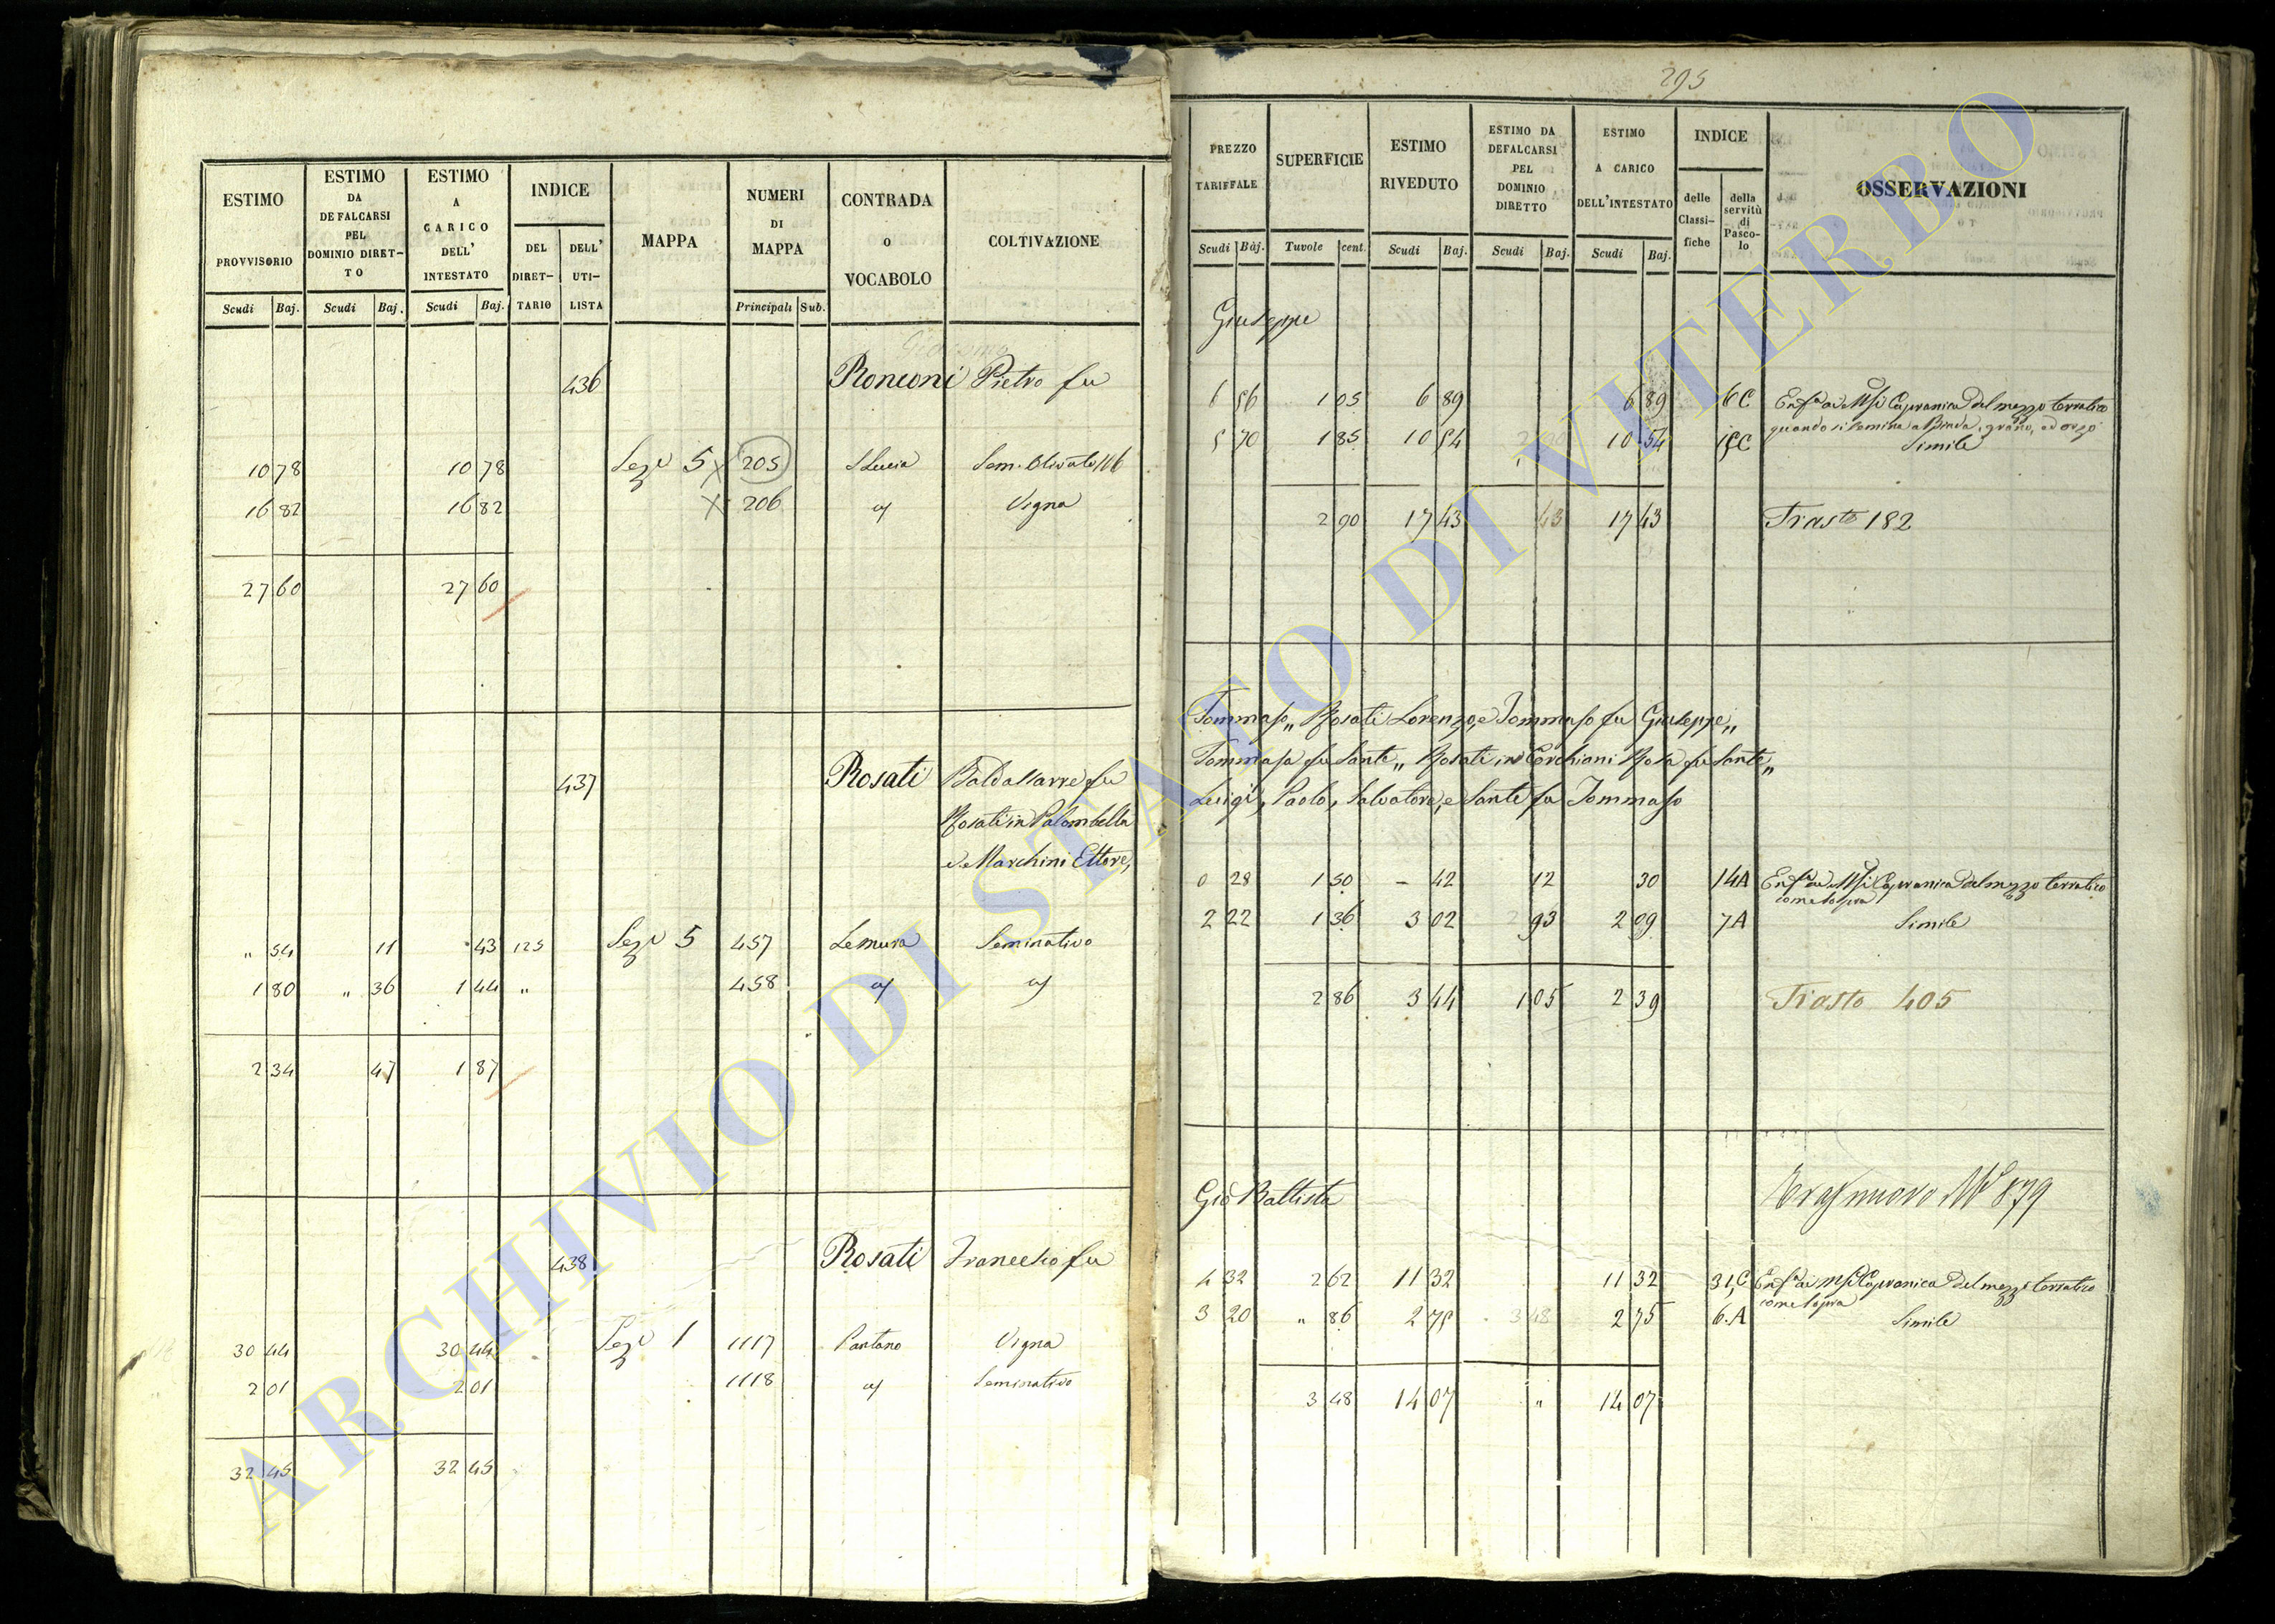 295
ESTIMO PROVVISORIO
ESTIMO DA DEFALCARSI PEL DOMINIO DIRET-TO
ESTIMO A CARICO DELL' INTESTATO
INDICE
DEL DIRET-TARIO
DELL' UTI-LISTA
MAPPA
NUMERI DI MAPPA
CONTRADA O VOCABOLO
COLTIVAZIONE
Scudi Baj. Scudi Baj. Scudi Baj. Principali Sub.
PREZZO TARIFFALE
SUPERFICIE
ESTIMO RIVEDUTO
ESTIMO DA DEFALCARSI PEL DOMINIO DIRETTO
ESTIMO A CARICO DELL'INTESTATO
INDICE
delle Classi-fiche
della servitù di Pasco-lo
OSSERVAZIONI
Scudi Baj. Tuvole cent. Scudi Baj. Scudi Baj. Scudi Baj.
436 Ronconi Pietro fu Giuseppe
10 78 10 78 Sez.e 5 205 S Lucia Sem. Olivato 6 56 1 05 6 89 6 89 6C Enf.a a Msi Capranica del mezzo terratico
quando si semina a Biada, grano, ed orzo
16 82 16 82 206 Vigna 5 70 1 85 10 54 10 54 15C Simile
2 90 17 43 17 43 Trasto 182
27 60 27 60
437 Rosati Baldassarre fu Tommaso „ Rosati Lorenzo, e Tommaso fu Giuseppe „
Rosati in Palombella Tommasa fu Sante „ Rosati in Corchiani Rosa fu Sante „
e Marchini Ettore, Luigi, Paolo, Salvatore, e Sante fu Tommaso
„ 54 11 43 125 Sez.e 5 457 Le mura Seminativo 0 28 1 50 - 42 12 30 14A Enf.a a Msi Capranica del mezzo terratico
come sopra
1 80 „ 36 1 44 „ 458 2 22 1 36 3 02 93 2 09 7A Simile
2 86 3 44 1 05 2 39 Trasto 405
2 34 47 1 87
438 Rosati Francesco fu Gio Battista
nuovo N° 879
30 44 30 44 Sez.e 1 1117 Pantano Vigna 4 32 2 62 11 32 11 32 31,C Enf.a a Msi Capranica del mezzo terratico
come sopra
2 01 2 01 1118 Seminativo 3 20 „ 86 2 75 2 75 6.A Simile
3 48 14 07 „ 14 07
32 45 32 45
ARCHIVIO DI STATO DI VITERBO